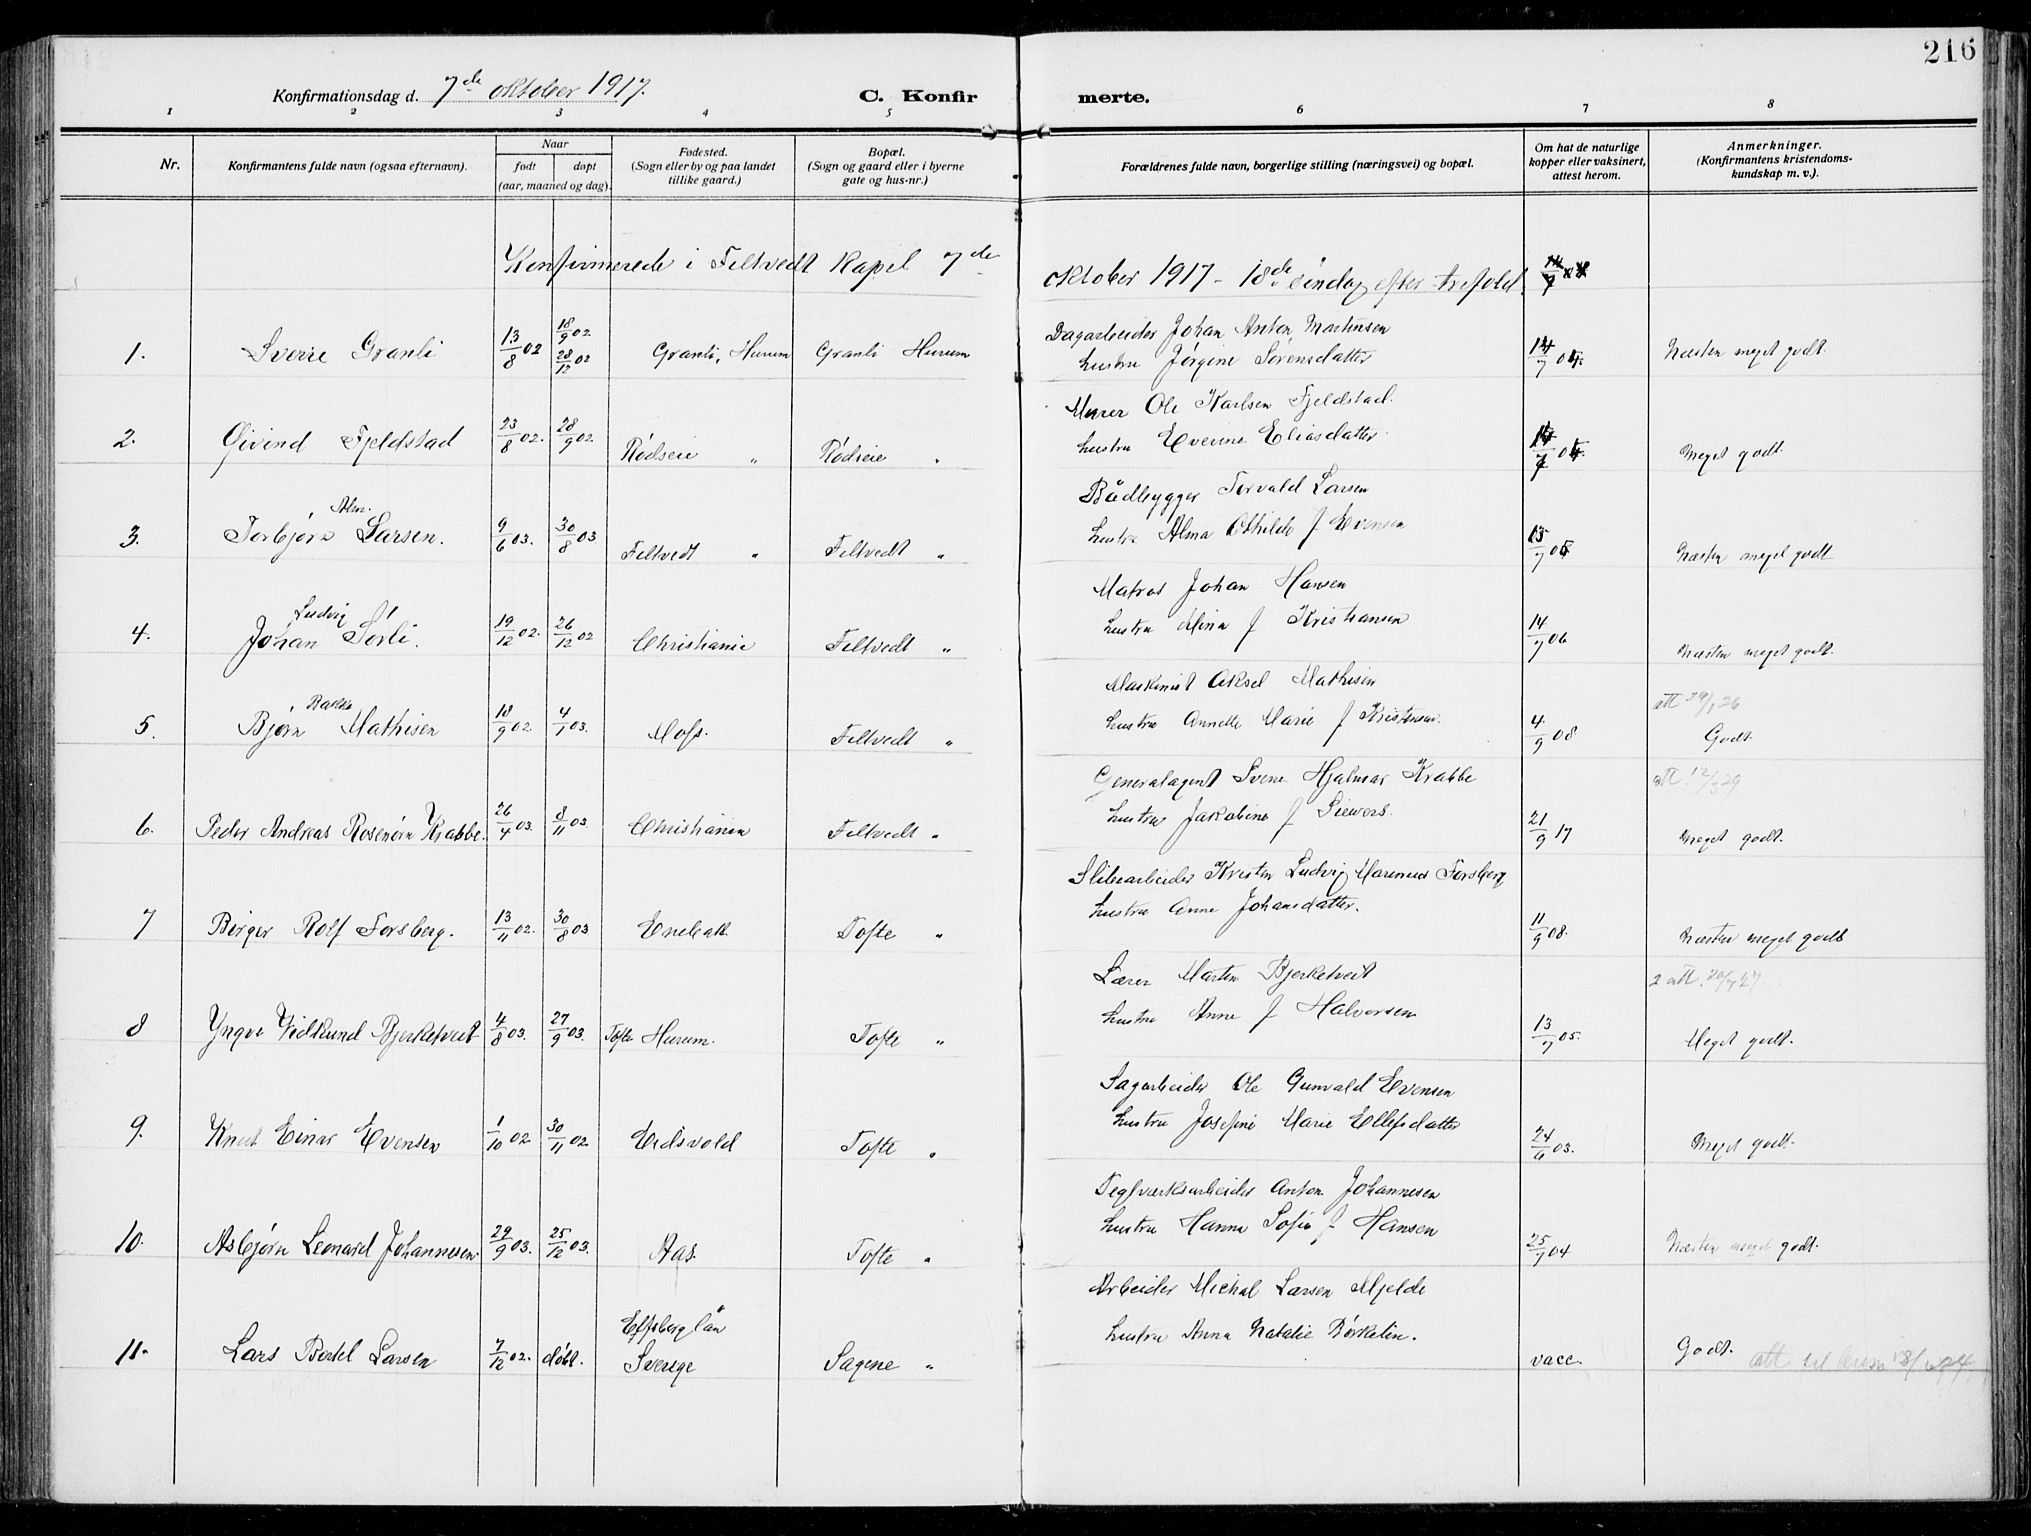 216
Konfirmationsdag d. 7de oktober 1917. C. Konfirmerte.
1 2 3 4 5 6 7 8
Nr. Konfirmantens fulde navn (ogsaa efternavn). Naar født døpt (aar, maaned og dag). Fødested. (Sogn eller by og paa landet tillike gaard.) Bopæl. (Sogn og gaard eller i byerne gate og hus-nr.) Forældrenes fulde navn, borgerlige stilling (næringsvei) og bopæl. Om hat de naturlige kopper eller vaksinert, attest herom. Anmerkninger. (Konfirmantens kristendomskundskap m. v.).
Konfirmerede i Filtvedt kapel 7de oktober 1917 - 18de søndag efter trefold.
Dagarbeider Johan Anton Martinsen
1. Sverre Granli 13/8 02 18/9 02 28/12 02 Granli, Hurum Granli Hurum hustru Jørgine Sørensdatter 14/7 04. Næsten meget godt.
Murer Ole Karlsen Fjeldstad.
2. Øivind Fjeldstad 23/8 02. 28/9 02. Rødseie " Rødseie " hustru Everine Eliasdatter 14/7 04. Meget godt.
Bådbygger Torvald Larsen
3. Torbjørn Alm. Larsen. 9/6 03. 30/8 03 Filtvedt " Filtvedt " hustru Alma Othilde f Evensen 15/7 05 Næsten meget godt
Matros Johan Hansen
4. Johan Ludvig Sørli. 19/12 02. 26/12 02 Christiania Filtvedt " hustru Mina f Kristiansen 14/7 06 Næsten meget godt.
Maskinist Aksel Mathisen att 29/1 26
5. Bjørn Mathisen 18/9 02. 4/1 03. Moss. Filtvedt " hustru Annette Marie f Kristensen. 4/9 08 Godt.
Generalagent Svene Hjalmar Krabbe att 12/3 29
6. Peder Andreas Rosenørn Krabbe. 26/4 03. 8/11 03. Christiania Filtvedt " hustru Jakobine f Siewers. 21/9 17 Meget godt.
Sliberarbeider Kristen Ludvig Marenius Forsberg
7 Birger Rolf Forsberg. 13/11 02. 30/8 03 Enebak Tofte " hustru Anne Johansdatter. 11/9 08. Næsten meget godt
Lærer Martin Bjerketveit 2 att. 20/4 27.
8 Yngve Vidkund Bjerketveit 4/8 03. 27/9 03. Tofte Hurum. Tofte " hustru Anne f Halvorsen 13/7 05. Meget godt.
Sagarbeider Ole Gunvald Evensen
9. Knut Einar Evensen 1/10 02 30/11 02 Eidsvold Tofte " hustru Josefine Marie Ellefsdatter 24/6 03. Meget godt.
Teglværksarbeider Anton Johannesen
10. Asbjørn Leonard Johannesen. 29/9 03. 25/12 03. Aas. Tofte " hustru Hanna Sofie f Hansen 25/7 04 Næsten meget godt.
Arbeider Michal Larsen Mjelde
11. Lars Bertel Larsen 7/12 02. døbt. Elfsborg län Sverige Sagene " hustru Anna Natalie Børkelin. vacc. Godt.